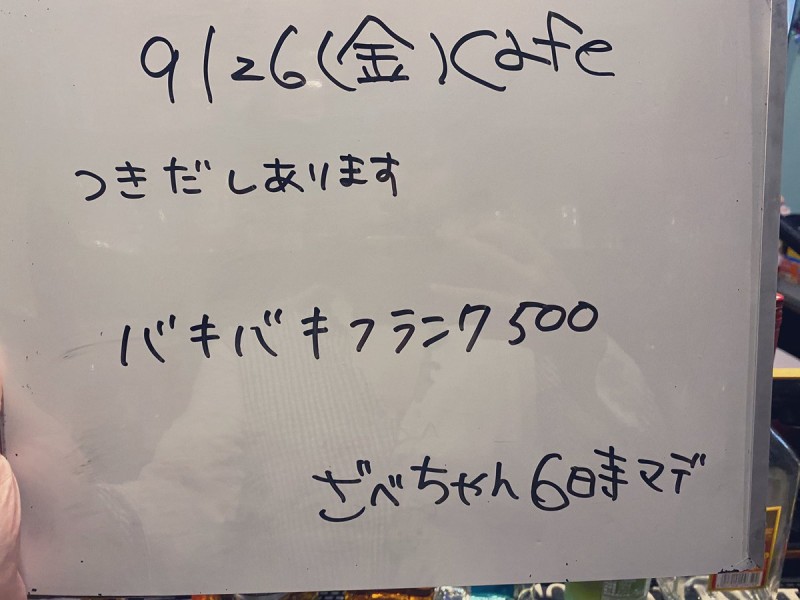 9/26(金)Cafe
つきだしあります
バキバキフランク500
ざべちゃん6時マデ